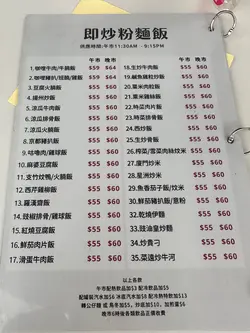 即炒粉麵飯
供應時間:午市11:30AM - 9:15PM
午市 晚市
1.咖喱牛肉/牛腩飯 $59 $64
2.咖喱豬扒/班腩/雞飯 $59 $64
3.豆腐火腩飯 $55 $60
4.揚州炒飯 $55 $60
5.涼瓜牛肉飯 $55 $60
6.涼瓜排骨飯 $55 $60
7.涼瓜火腩飯 $55 $60
8.京都豬扒飯 $55 $60
9.咕嚕肉/雞球飯 $55 $60
10.麻婆豆腐飯 $55 $60
11.支竹炆鴨/火腩飯 $55 $60
12.西芹雞柳飯 $55 $60
13.羅漢齋飯 $55 $60
14.豉椒排骨/雞球飯 $55 $60
15.紅燒豆腐飯 $55 $60
16.鮮茄肉片飯 $55 $60
17.滑蛋牛肉飯 $55 $60
午市 晚市
18.生炒牛肉飯 $55 $60
19.鹹魚雞粒炒飯 $55 $60
20.粟米肉粒飯 $55 $60
21.粟米雞絲飯 $55 $60
22.時菜肉片飯 $55 $60
23.時菜排骨飯 $55 $60
24.西炒飯 $55 $60
25.生炒骨飯 $55 $60
26.梅菜/雪菜肉絲炆米 $55 $60
27.廈門炒米 $55 $60
28.星洲炒米 $55 $60
29.魚香茄子飯/炆米 $55 $60
30.鮮茄豬扒飯/意粉 $55 $60
32.乾燒伊麵 $55 $60
33.豉油皇炒麵 $55 $60
34.炒貴刁 $55 $60
35.菜遠炒牛河 $55 $60
以上各款
午市配熱飲品加$3 配凍飲品加$5
配罐裝汽水加$6 冰底汽水加$8 配凍熱特飲加$13
轉公仔麵 或 烏冬加$5, 炒底加$10, 加煎蛋$6
晚市6時後各類飲品正價收費